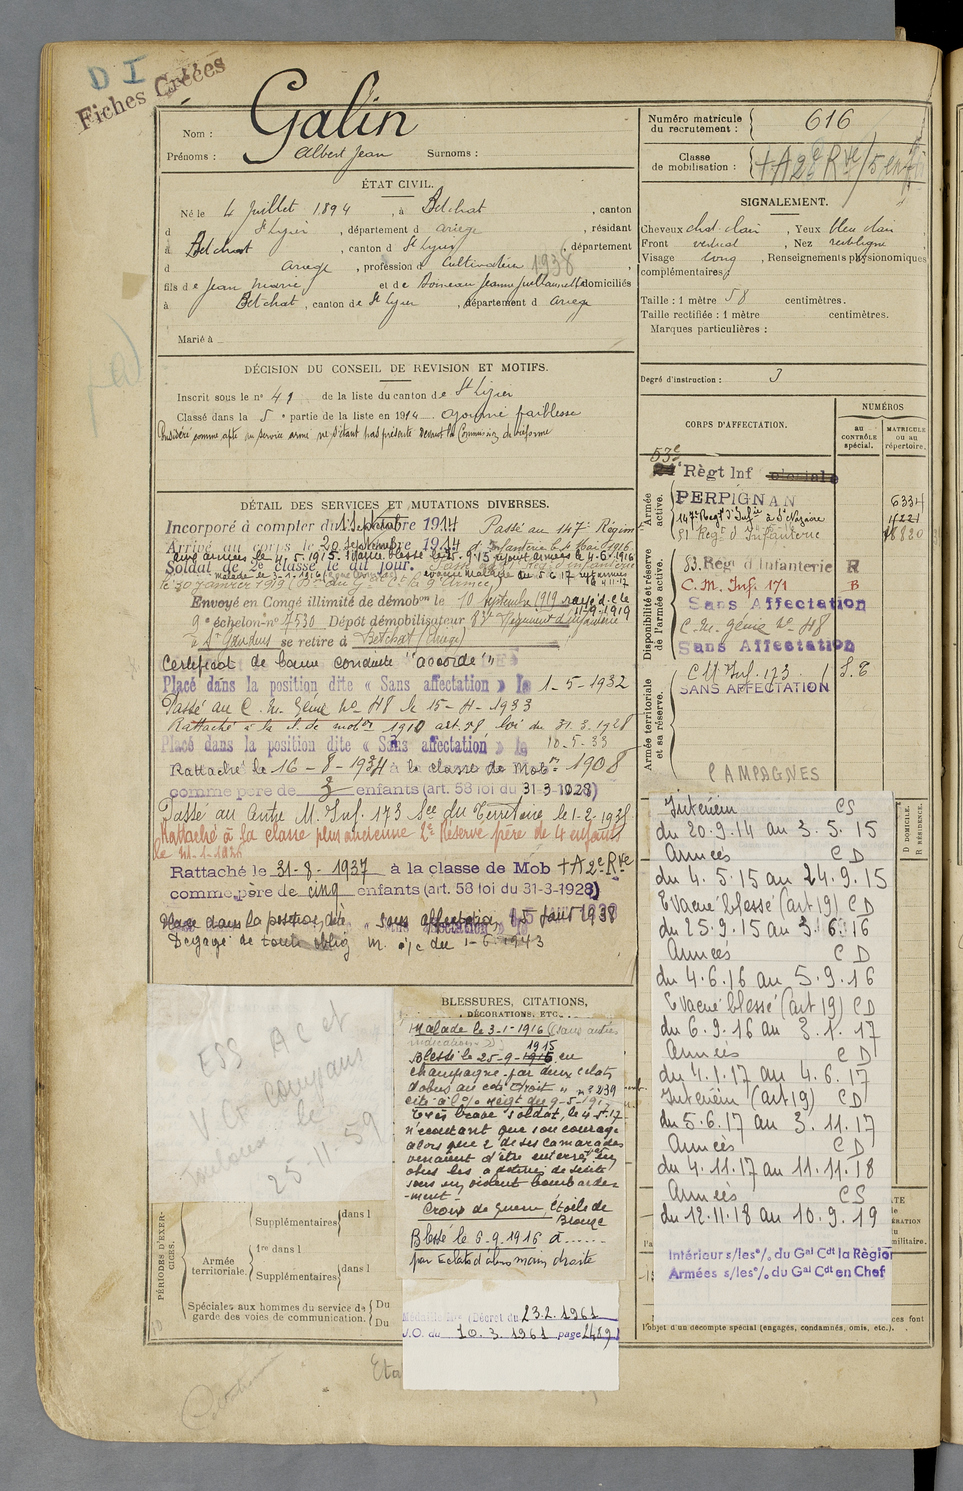 D I
Fiches Créées
Nom : Galin
Prénoms : Albert Jean Surnoms :
ÉTAT CIVIL.
Né le 4 Juillet 1894, à Betchat, canton
d St Lizier, département d Ariège, résidant
à Betchat, canton d St Lizier, département
d Ariège, profession de Cultivateur 1938
fils de Jean Marie et de domiciliés
à Betchat, canton de St Lizier, département d Ariège
Marié à
DÉCISION DU CONSEIL DE REVISION ET MOTIFS.
Inscrit sous le n° 41 de la liste du canton de St Lizier
Classé dans la 5e partie de la liste en 1914 Ajourné faiblesse
Considéré comme apte au service armé ne s'étant pas présenté devant la Commission de réforme
DÉTAIL DES SERVICES ET MUTATIONS DIVERSES.
Incorporé à compter du 1 Septembre 1914 Passé au 147e Régiment
Arrivé au corps le 20 septembre 1914 d'Infanterie le 4 Mai 1916
aux armées le 4.5.1915. Evacué blessé le 25.9.15 rejoint armées le 4.6.1916
Soldat de 2e classe le dit jour.
malade le 3-1-1916 évacué malade du 5.6.17 aux armées
le 30 janvier 1919 4-11-17
Envoyé en Congé illimité de démobon le 10 septembre 1919 rayé d. c. le
9e échelon n° 7530 Dépôt démobilisateur 83e Régiment d'Infanterie 11-9-1919
à St Gaudens se retire à Betchat (Ariège)
Certificat de bonne conduite "accordé"
Placé dans la position dite « Sans affectation » le 1-5-1932
Passé au C. M. Génie No 48 le 15-4-1933
Rattaché à la cl. de mobon 1910 art 58, loi du 31.3.1928
Placé dans la position dite « Sans affectation » le 10-5-33
Rattaché le 16-8-1934 à la classe de Mobon 1908
comme père de 3 enfants (art. 58 loi du 31-3-1928)
Passé au Centre M. Inf. 173 Son du Territoire le 1-2-1938
Rattaché à la classe plus ancienne 2e Réserve père de 4 enfants
le 31-1-1936
Rattaché le 31-8-1937 à la classe de Mob + A 2e Rve
comme père de cinq enfants (art. 58 loi du 31-3-1928)
Placé dans la position dite "sans affectation" 15 1938
Dégagé de toute oblig. m. à/c du 1-6-1943
ESS AC et
V G Compans
Toulouse le
25-11-59
BLESSURES, CITATIONS,
DÉCORATIONS, ETC.
Malade le 3-1-1916 (sans autres
indications)
Blessé le 25-9-1915 en
champagne par deux éclats
d'obus au côté droit
cité à l'o/ Régt n° 239 du 9-5-1917
Très brave soldat, le 4-5-17
n'écoutant que son courage
alors que 2 de ses camarades
venaient d'être enterrés par
obus les a
sous un violent bombarde-
-ment.
Croix de Guerre, Étoile de
Bronze
Blessé le 6-9-1916 à ......
par éclats d'obus main droite
Médaille Mre (Décret du 23.2.1961
J.O. du 10.3.1961 page 2489)
PÉRIODES D'EXERCICES.
Supplémentaires dans l
Armée territoriale. 1re dans l
Supplémentaires dans l
Spéciales aux hommes du service de garde des voies de communication. Du
Du
Numéro matricule du recrutement : 616
Classe de mobilisation : + A 2e Rve
SIGNALEMENT.
Cheveux chat. clair, Yeux bleu clair
Front vertical, Nez rectiligne
Visage long, Renseignements physionomiques
complémentaires :
Taille : 1 mètre 58 centimètres.
Taille rectifiée : 1 mètre centimètres.
Marques particulières :
Degré d'instruction : 3
CORPS D'AFFECTATION.
NUMÉROS
au CONTRÔLE spécial.
MATRICULE ou au répertoire.
Armée active.
53e Règt Inf
PERPIGNAN 6334
147e Regt d'Infie à St Nazaire 11221
Regt d'Infanterie 18820
Disponibilité et réserve de l'armée active.
83. Régt d'Infanterie R
C. M. Inf. 171 B
Sans Affectation
C. M. Génie No 48
Sans Affectation
Armée territoriale et sa réserve.
CM Inf. 173
SANS AFFECTATION
CAMPAGNES
Intérieur CS
du 20.9.14 au 3.5.15
Armées CD
du 4.5.15 au 24.9.15
Evacué blessé (art 19) CD
du 25.9.15 au 3.6.16
Armées CD
du 4.6.16 au 5.9.16
Evacué blessé (art 19) CD
du 6.9.16 au 3.1.17
Armées CD
du 4.1.17 au 4.6.17
Intérieur (art 19) CD
du 5.6.17 au 3.11.17
Armées CD
du 4.11.17 au 11.11.18
Armées CS
du 12.11.18 au 10.9.19
Intérieur s/les o/. du Gal Cdt la Région
Armées s/les o/. du Gal Cdt en Chef
D DOMICILE.
R RÉSIDENCE.
l'objet d'un décompte spécial (engagés, condamnés, omis, etc.).